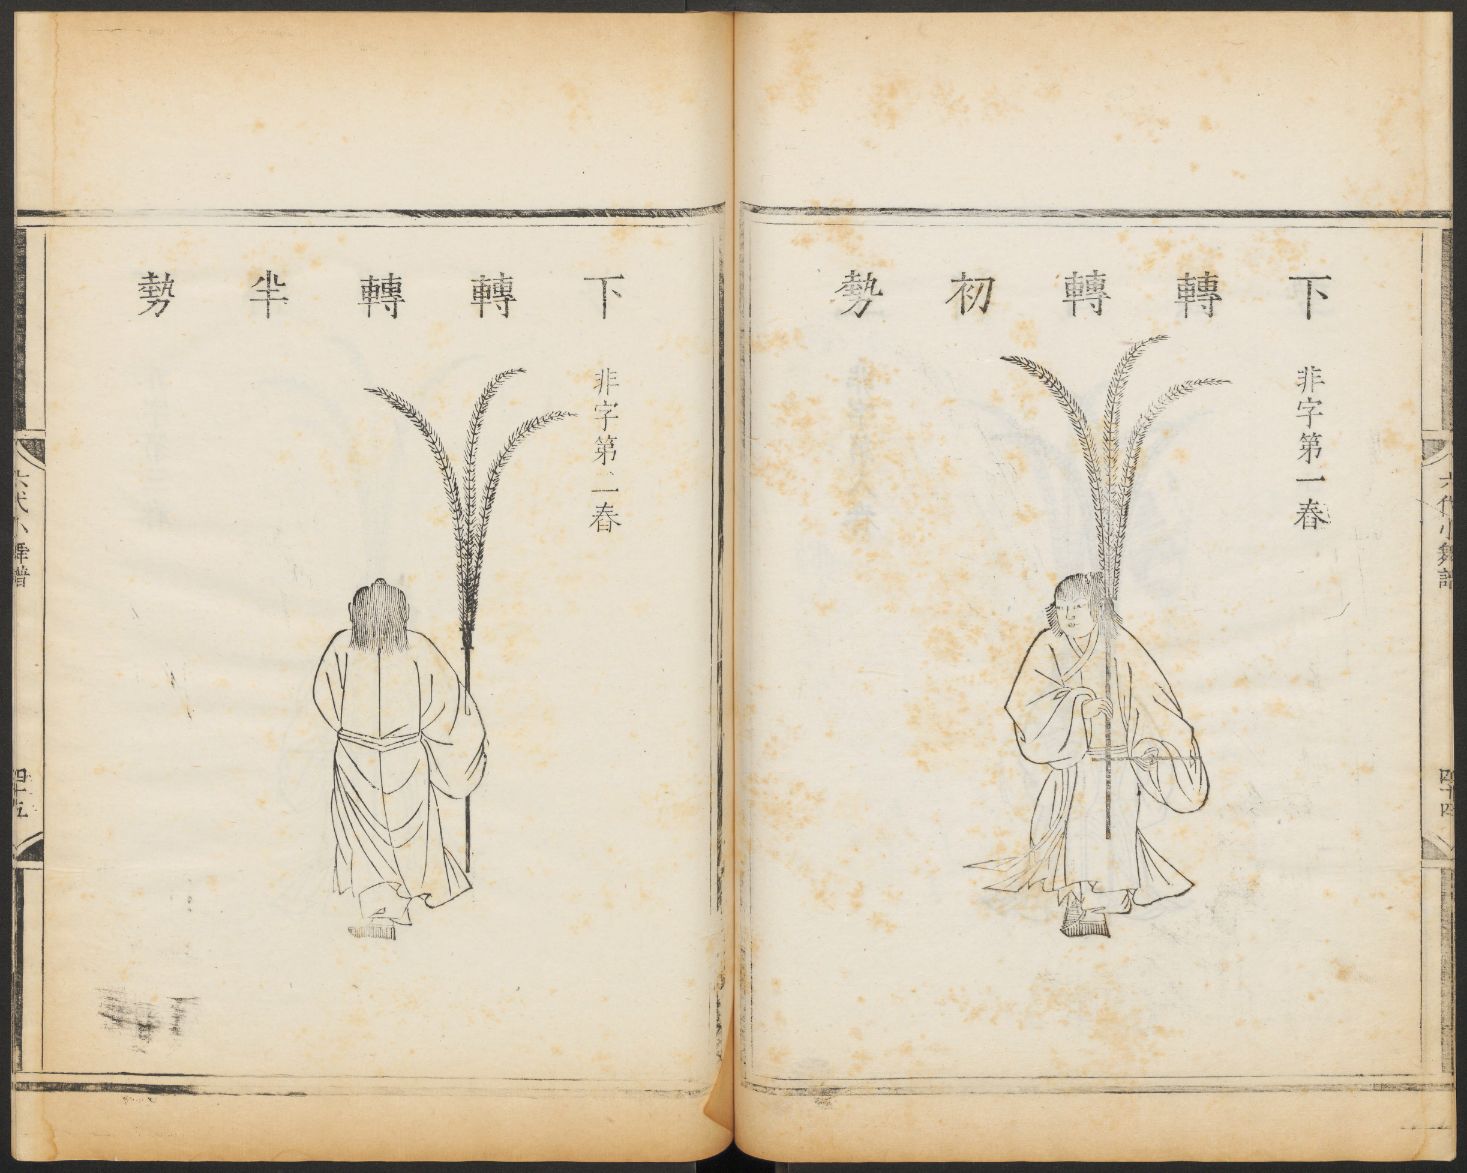 下轉轉初勢
非字第一春
六代小舞譜
四十四
下轉轉半勢
非字第二春
六代小舞譜
四十五